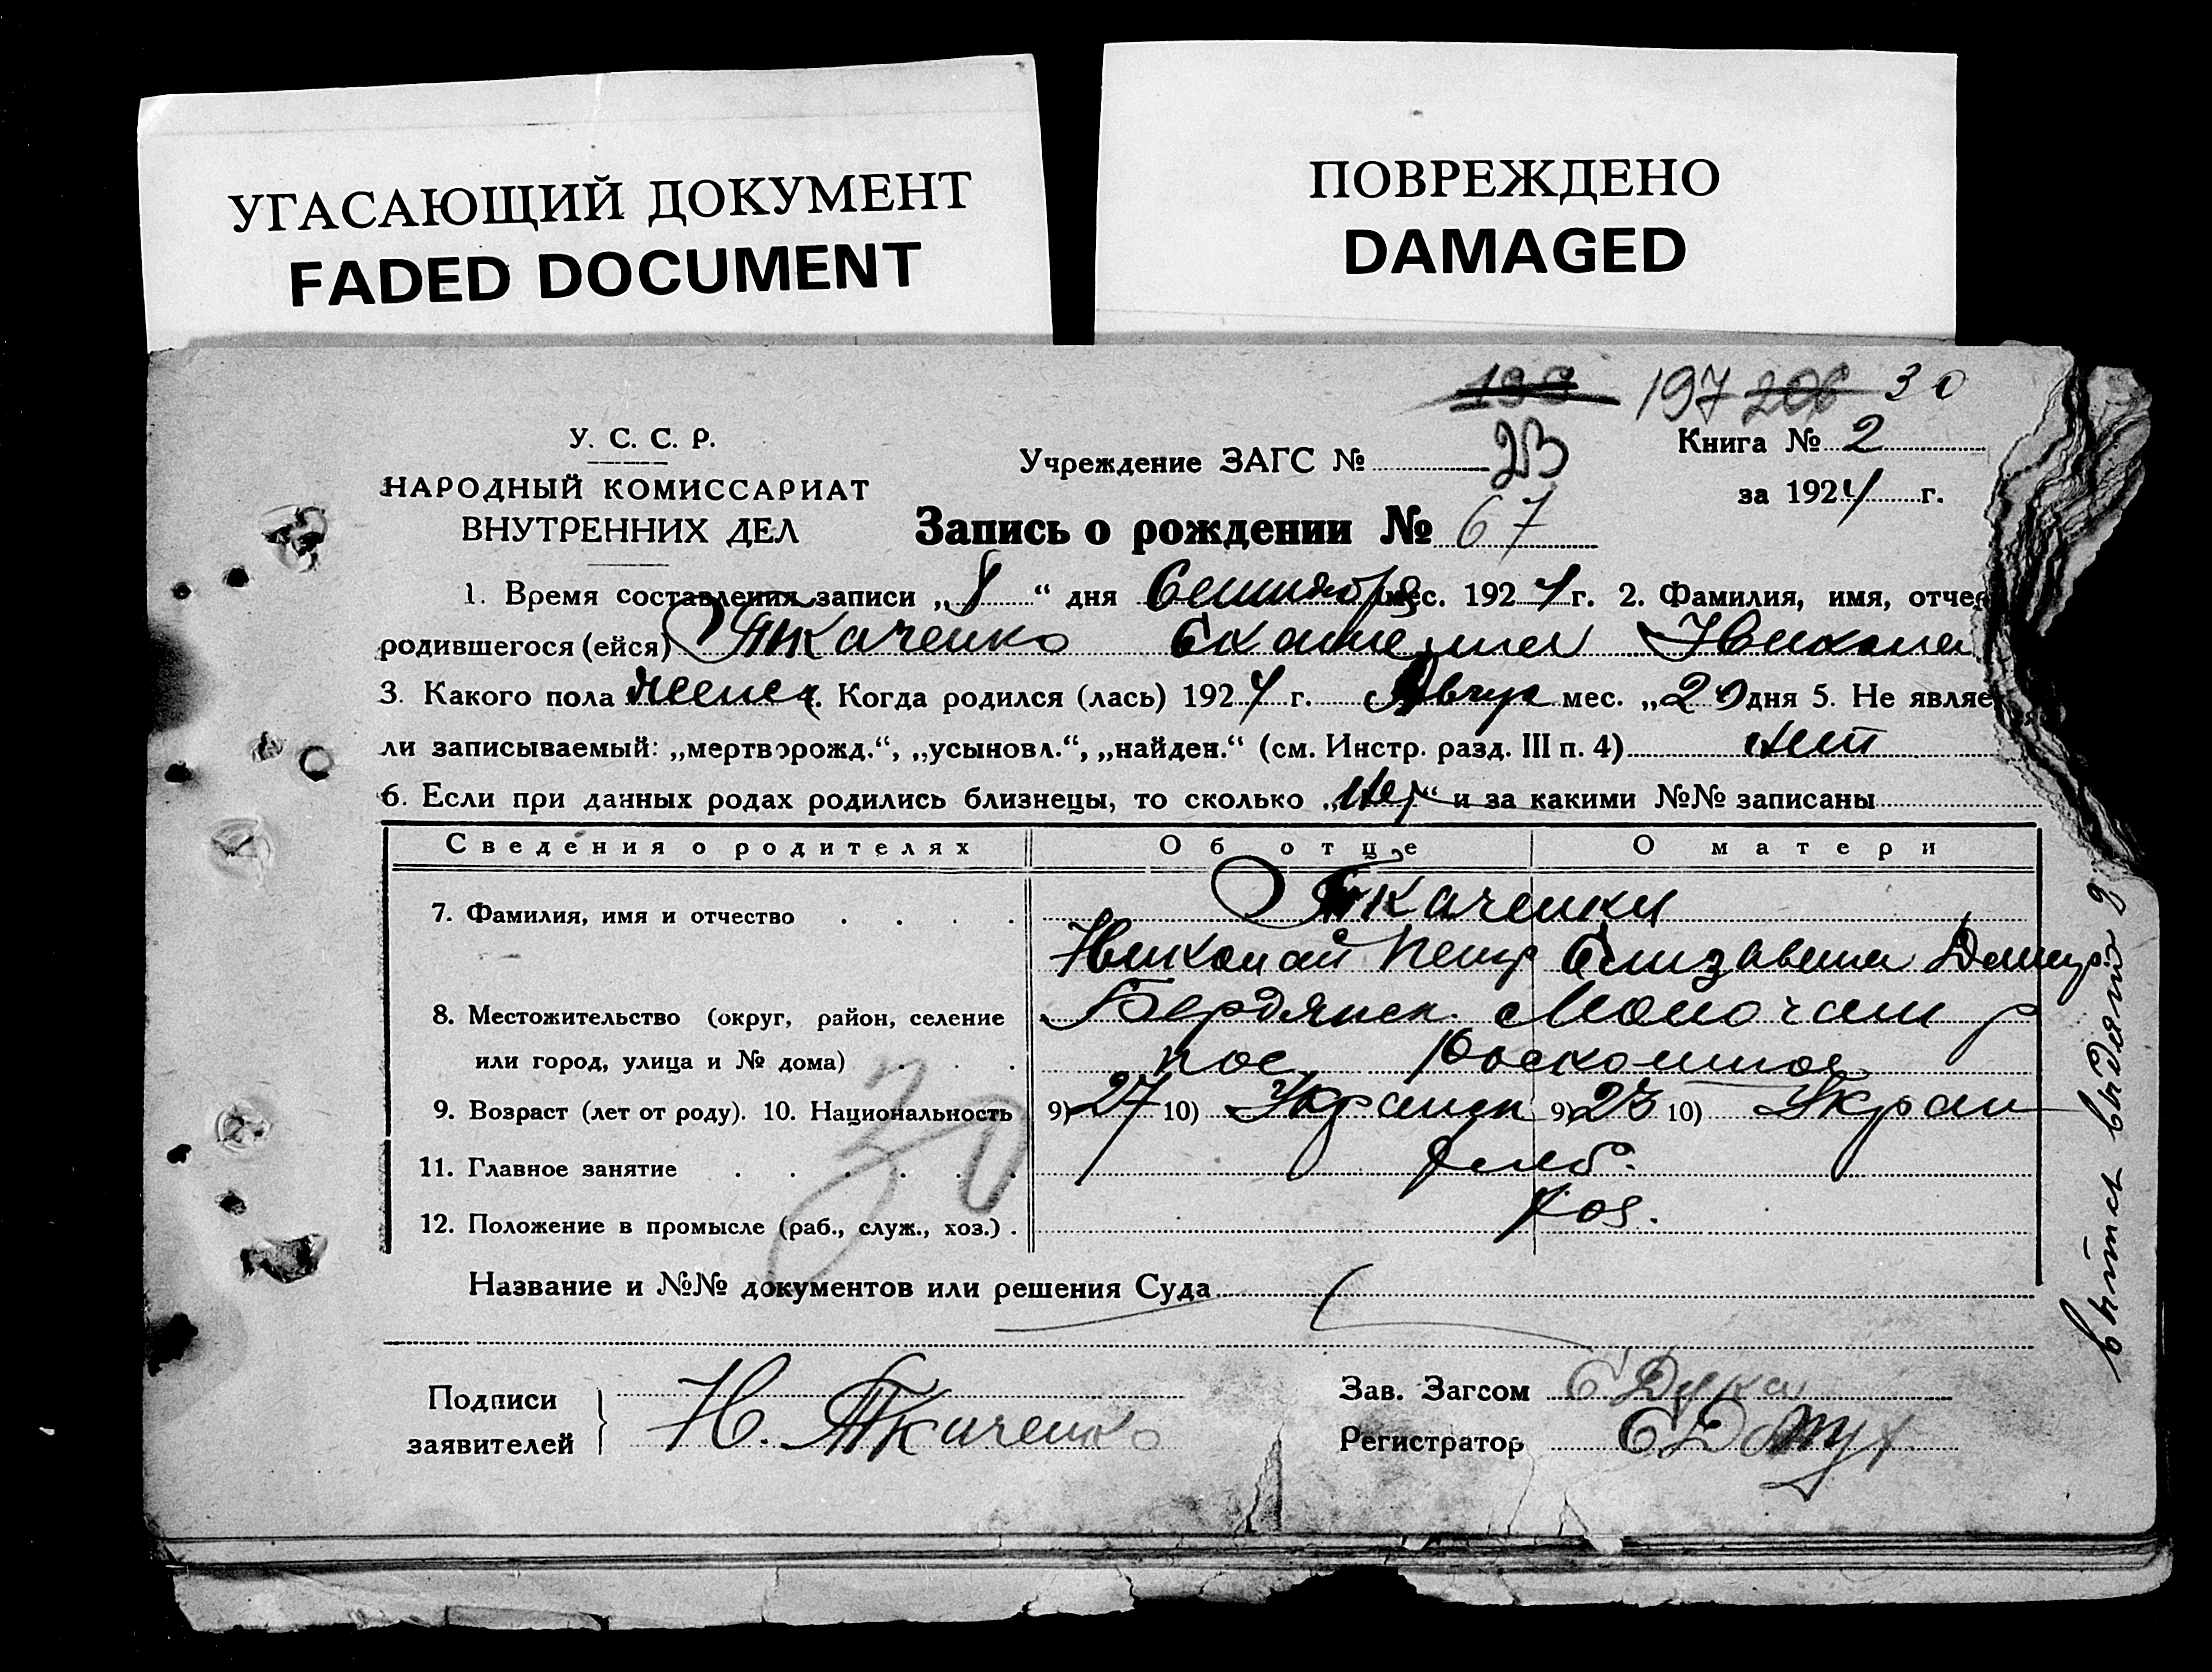 УГАСАЮЩИЙ ДОКУМЕНТ
FADED DOCUMENT
ПОВРЕЖДЕНО
DAMAGED
197 206 30
У. С. С. Р.
НАРОДНЫЙ КОМИССАРИАТ
ВНУТРЕННИХ ДЕЛ
Учреждение ЗАГС № 23
Книга № 2
за 1924 г.
Запись о рождении № 67
1. Время составления записи „8“ дня Сентября мес. 1924 г. 2. Фамилия, имя, отче
родившегося (ейся) Ткаченко Екатерина Никола
3. Какого пола женск. Когда родился (лась) 1924 г. Август мес. „20 дня 5. Не являе
ли записываемый: „мертворожд.“, „усыновл.“, „найден.“ (см. Инстр. разд. III п. 4) нет
6. Если при данных родах родились близнецы, то сколько „нет“ и за какими №№ записаны
Сведения о родителях Об отце О матери
7. Фамилия, имя и отчество . . . . Ткаченки
Николай Петр Елизавета Дмитр.
8. Местожительство (округ, район, селение Бердянск.
или город, улица и № дома) . . . пос.
9. Возраст (лет от роду). 10. Национальность 9) 27 10) Украин 9) 23 10) Украин
11. Главное занятие . . . . . . хлеб.
12. Положение в промысле (раб., служ., хоз.) . хоз.
30
Название и №№ документов или решения Суда
Подписи
заявителей
Н. Ткаченко
Зав. Загсом
Регистратор
выпись выдана